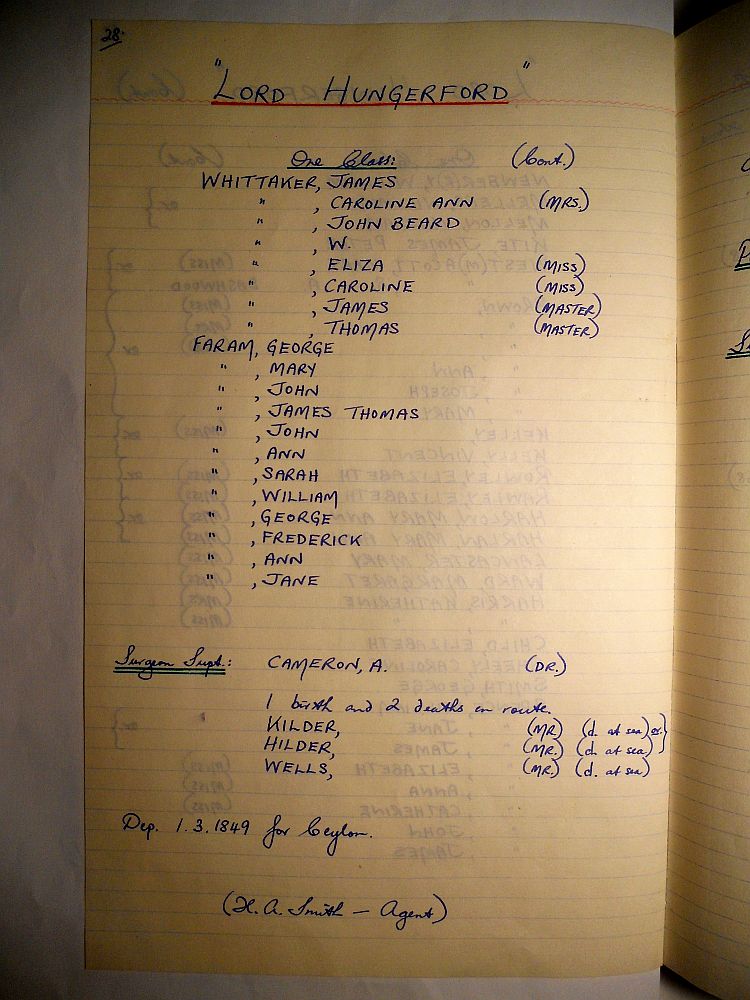 28.
"LORD HUNGERFORD"
One Class: (Cont.)
WHITTAKER, JAMES
" , CAROLINE ANN (MRS.)
" , JOHN BEARD
" , W.
" , ELIZA (MISS)
" , CAROLINE (MISS)
" , JAMES (MASTER)
" , THOMAS (MASTER)
FARAM, GEORGE
" , MARY
" , JOHN
" , JAMES THOMAS
" , JOHN
" , ANN
" , SARAH
" , WILLIAM
" , GEORGE
" , FREDERICK
" , ANN
" , JANE
Surgeon Supt: CAMERON, A. (DR.)
1 birth and 2 deaths en route.
KILDER, (MR) (d. at sea) or }
HILDER, (MR.) (d. at sea) }
WELLS, (MR.) (d. at sea)
Dep. 1.3.1849 for Ceylon.
(H.A. Smith - Agent)